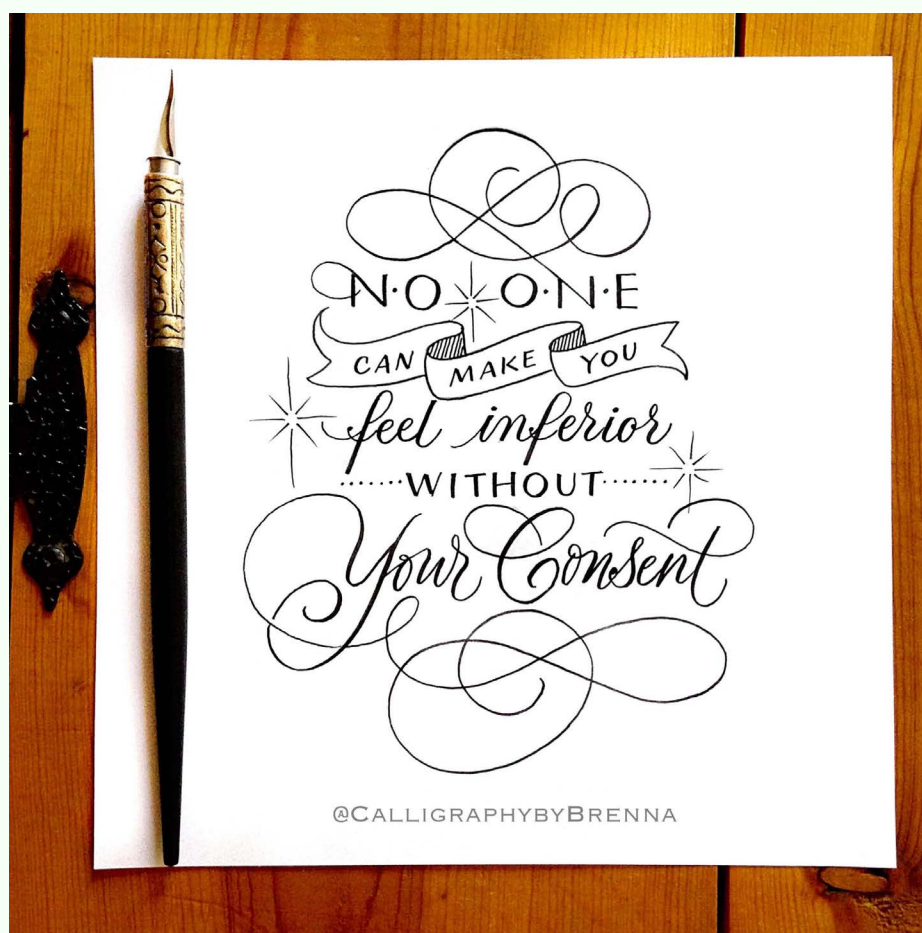 N·O O·N·E
CAN MAKE YOU
feel inferior
......WITHOUT......
Your Consent
@CALLIGRAPHYBYBRENNA